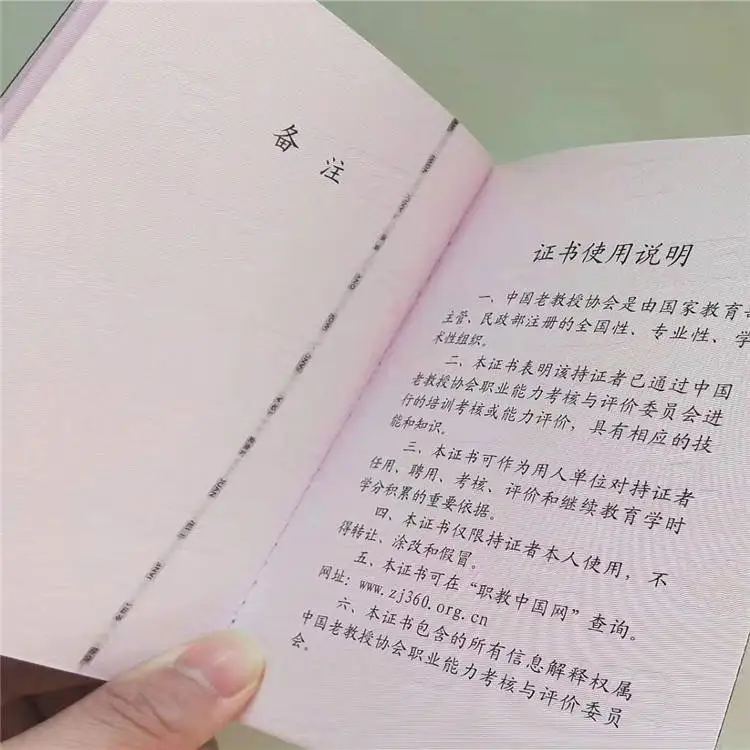 备注
证书使用说明
一、中国老教授协会是由国家教育部
主管、民政部注册的全国性、专业性、学
术性组织。
二、本证书表明该持证者已通过中国
老教授协会职业能力考核与评价委员会进
行的培训考核或能力评价，具有相应的技
能和知识。
三、本证书可作为用人单位对持证者
任用、聘用、考核、评价和继续教育学时
学分积累的重要依据。
四、本证书仅限持证者本人使用，不
得转让、涂改和假冒。
五、本证书可在“职教中国网”查询。
网址：www.zj360.org.cn
六、本证书包含的所有信息解释权属
中国老教授协会职业能力考核与评价委员
会。